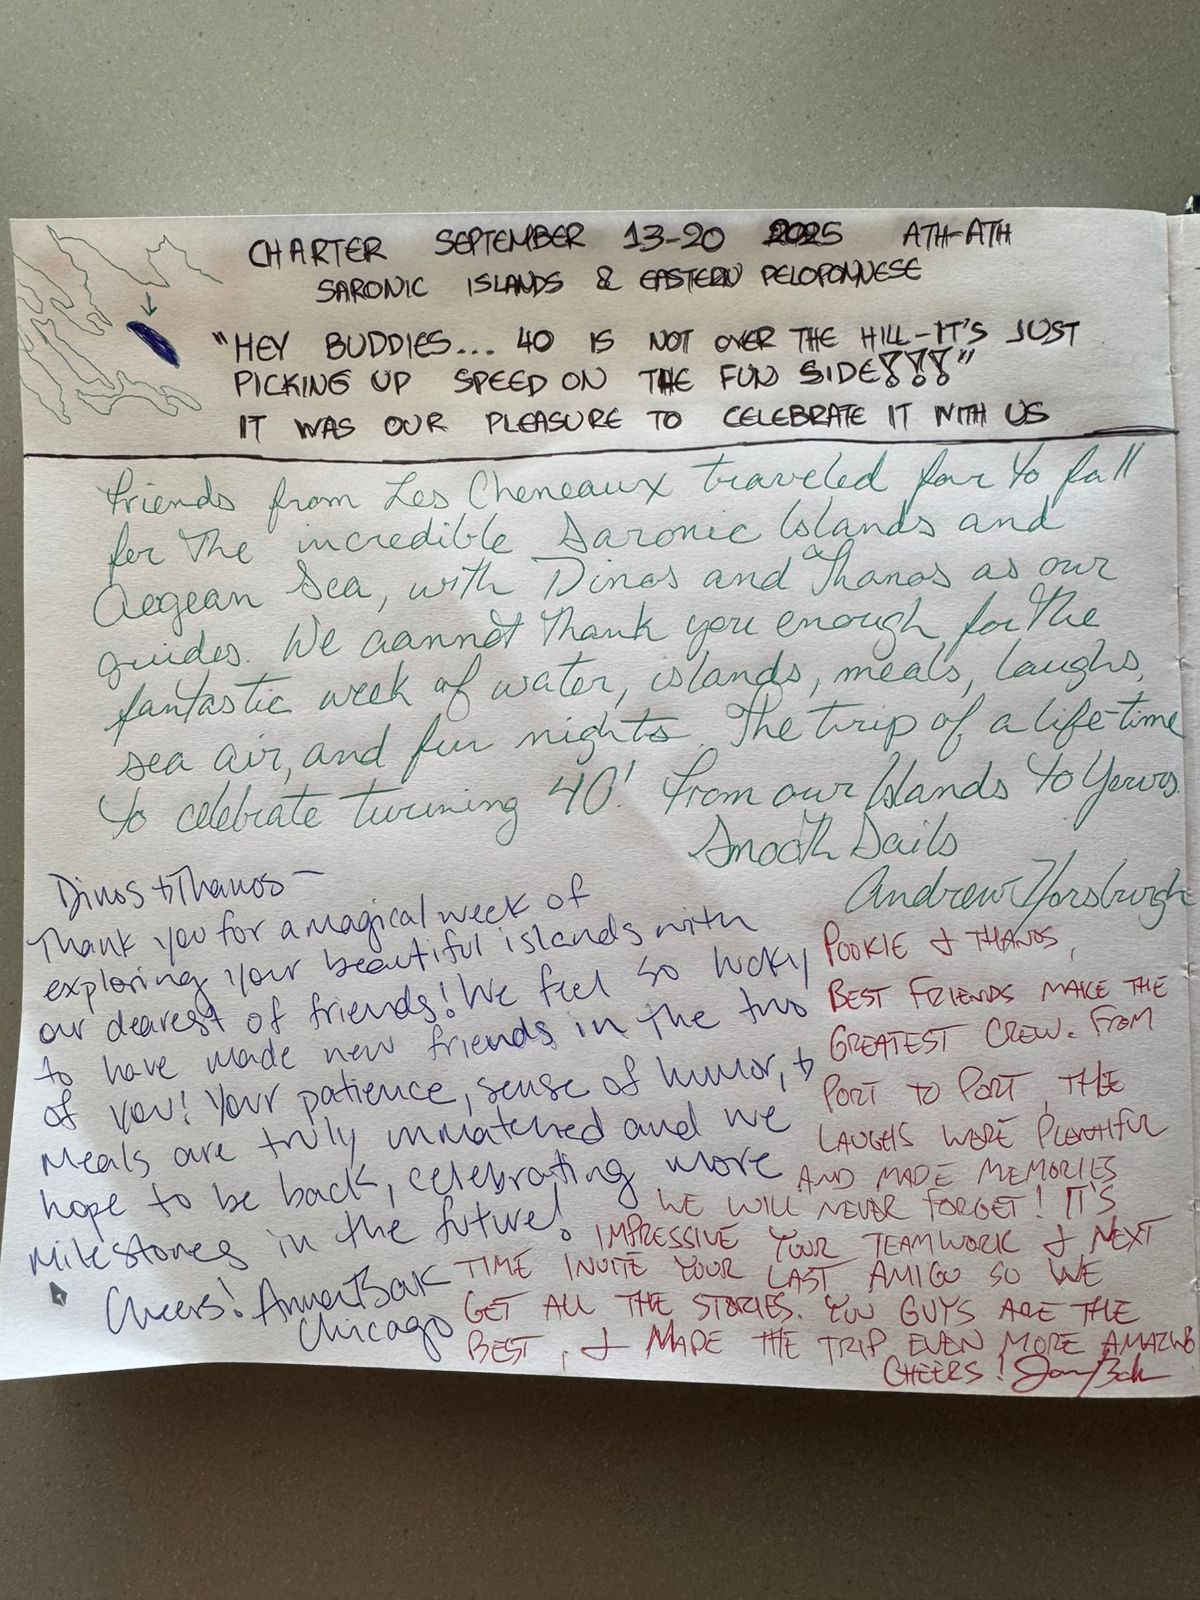 CHARTER SEPTEMBER 13-20 2025 ATH-ATH
SARONIC ISLANDS & EASTERN PELOPONNESE
"HEY BUDDIES... 40 IS NOT OVER THE HILL-IT'S JUST
PICKING UP SPEED ON THE FUN SIDE!!!"
IT WAS OUR PLEASURE TO CELEBRATE IT WITH US
Friends from Les Cheneaux traveled far to fall
for the incredible Saronic Islands and
Aegean Sea, with Dinos and Thanos as our
guides. We cannot thank you enough for the
fantastic week of water, islands, meals, laughs,
sea air, and fun nights. The trip of a life-time
to celebrate turning 40! From our Islands to Yours.
Smooth Sails
Andrew Horsburgh
Dinos & Thanos —
Thank you for a magical week of
exploring your beautiful islands with
our dearest of friends! We feel so lucky
to have made new friends in the two
of you! Your patience, sense of humor, &
meals are truly unmatched and we
hope to be back, celebrating more
milestones in the future!
Cheers! Anna Bak
Chicago
POOKIE & THANOS,
BEST FRIENDS MAKE THE
GREATEST CREW. FROM
PORT TO PORT, THE
LAUGHS WERE PLENTIFUL
AND MADE MEMORIES
WE WILL NEVER FORGET! IT'S
IMPRESSIVE YOUR TEAMWORK & NEXT
TIME INVITE YOUR LAST AMIGO SO WE
GET ALL THE STORIES. YOU GUYS ARE THE
BEST, & MADE THE TRIP EVEN MORE AMAZING
CHEERS!